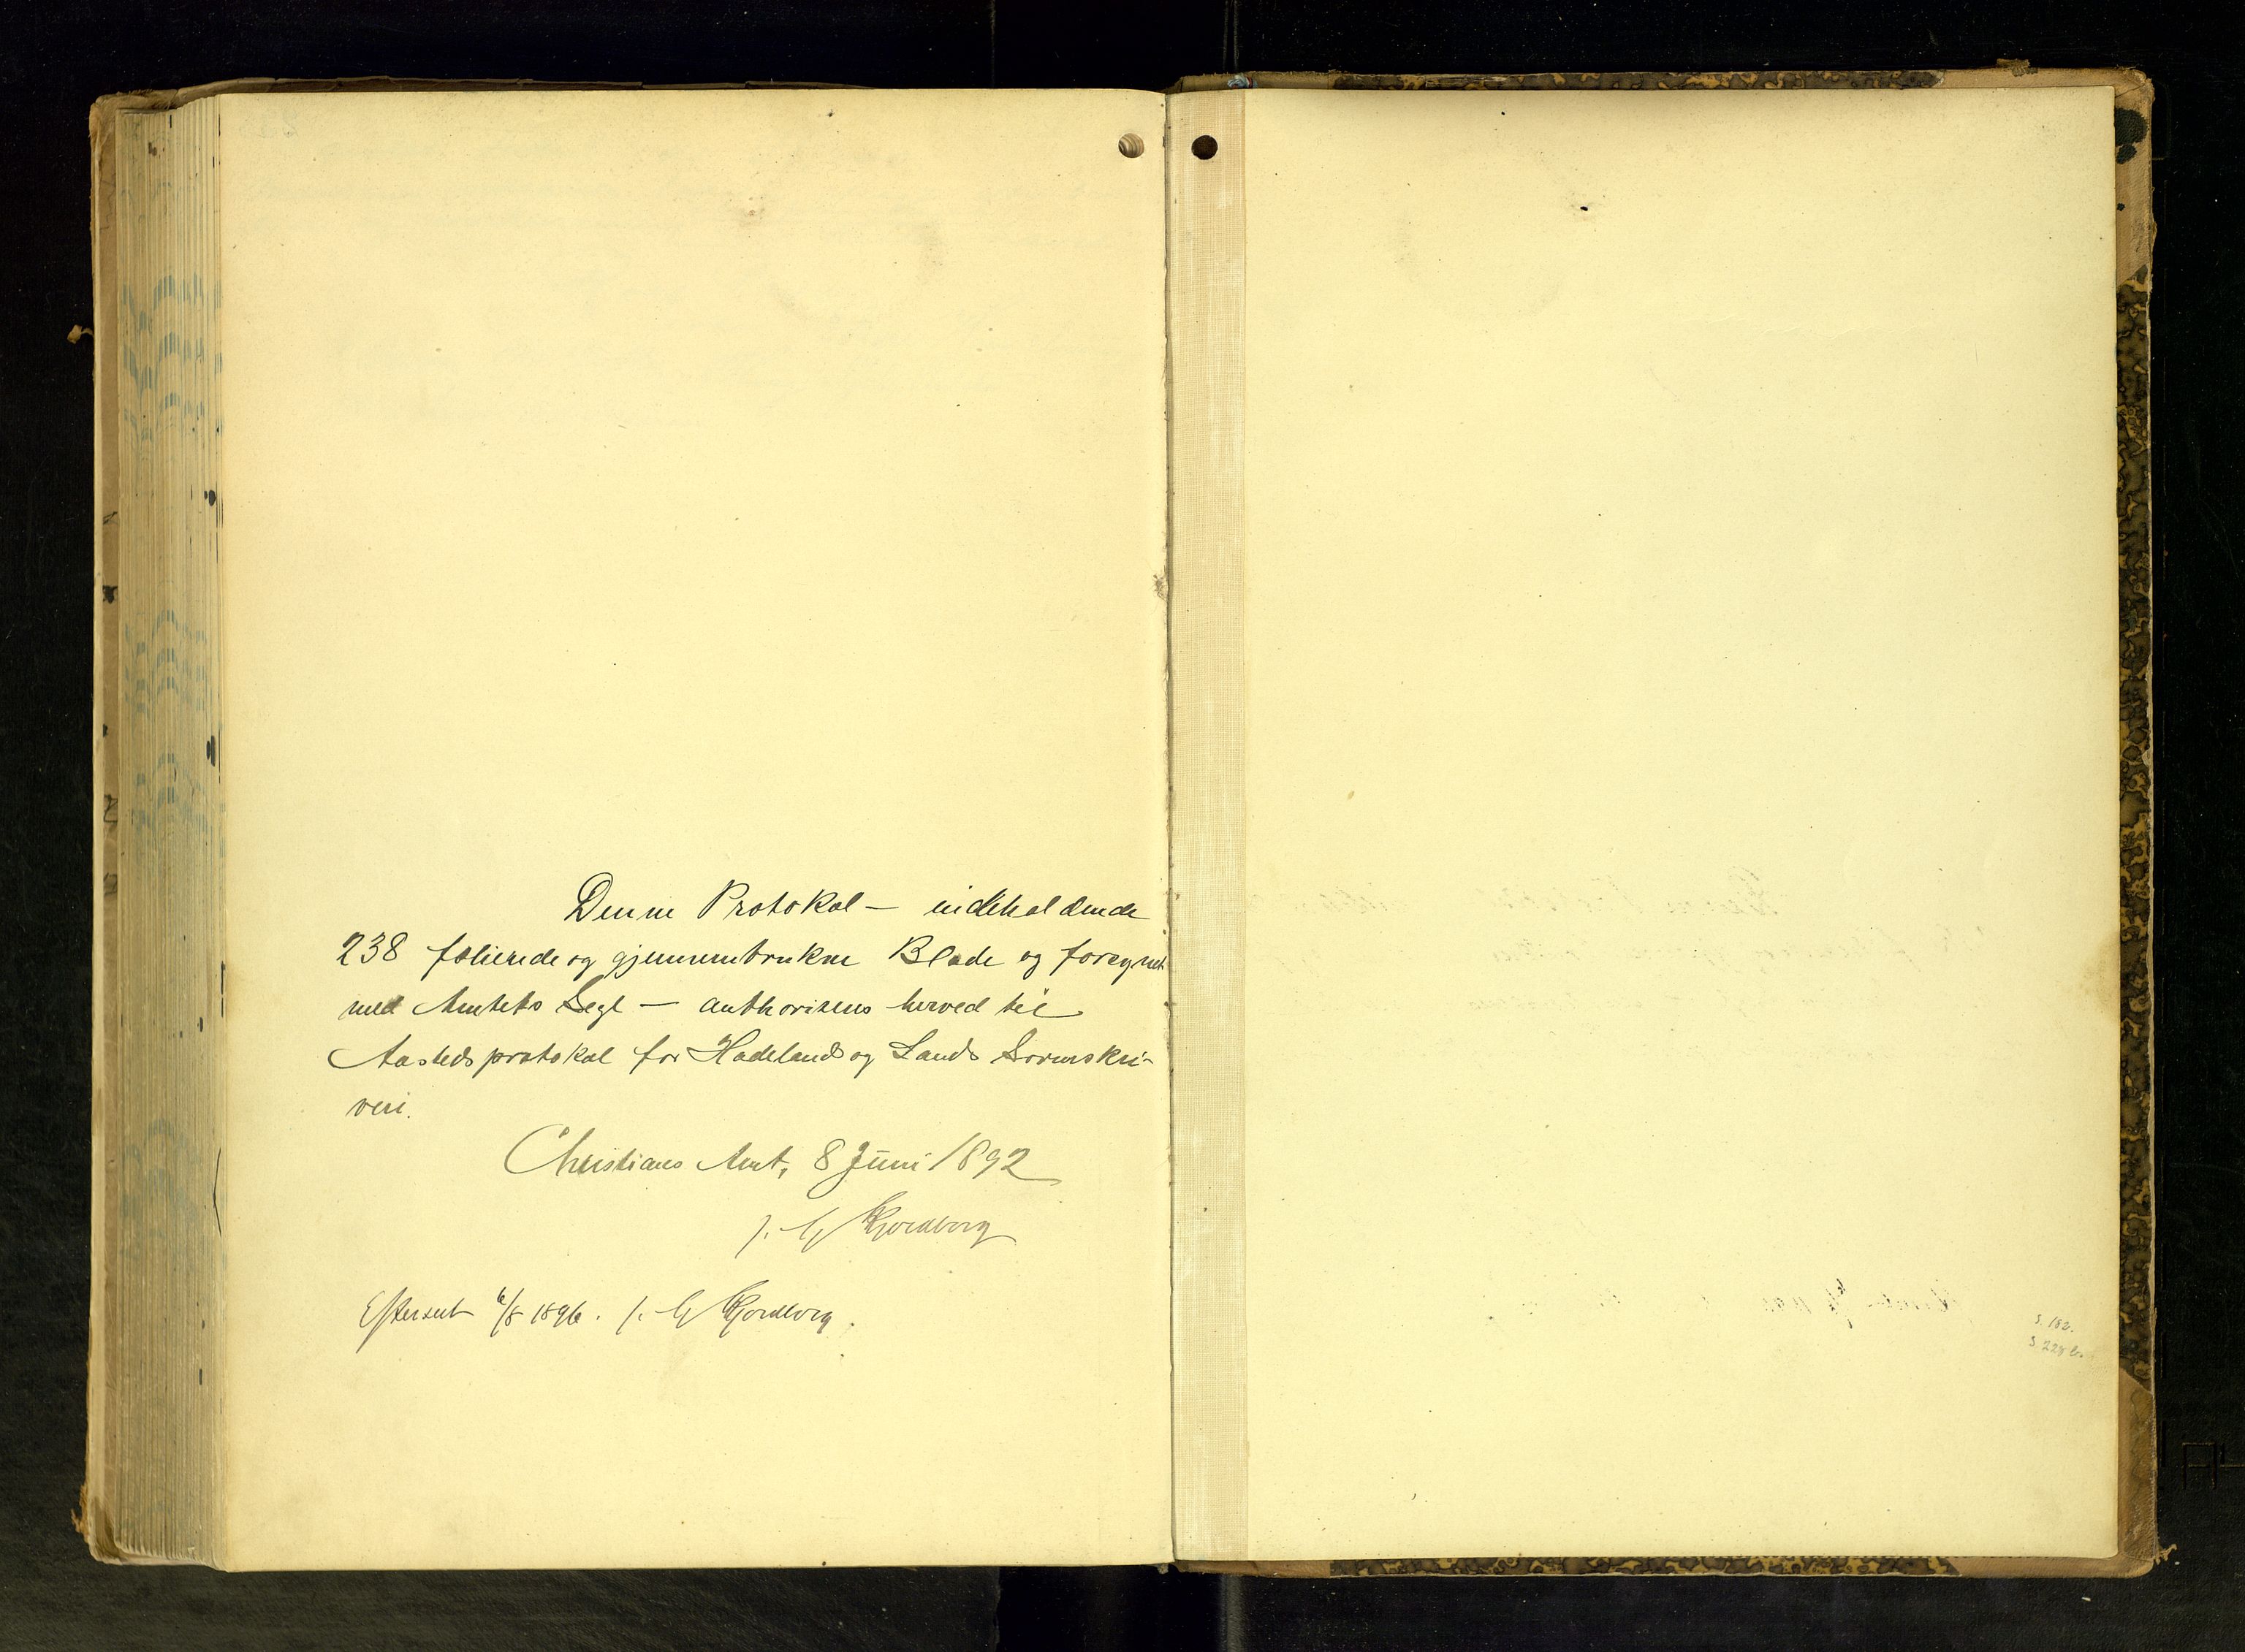 Denne Protokol — indeholdende
238 folierede og gjennemtrukne Blade og foresynet
med Amtets Segl — authoriseres herved til
Aastedsprotokol for Hadeland og Lands Sorenskri-
veri.
Christians Amt, 8 Juni 1892
Efterseet 6/8 1896.
S. 182.
S. 228 b.